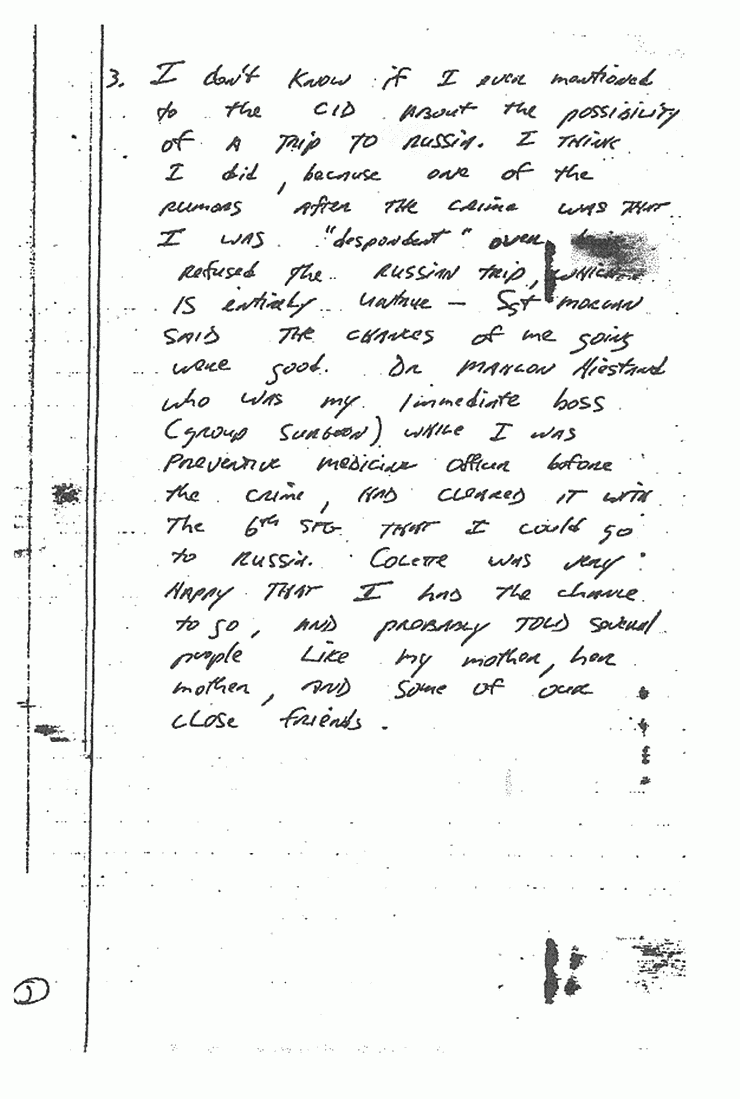 3. I don't know if I ever mentioned
to the CID about the possibility
of a trip to Russia. I think
I did, because one of the
rumors after the crime was that
I was "despondent" over
refused the Russian trip, which
is entirely untrue — Sgt Morgan
said the chances of me going
were good. Dr Manson Hiestand
who was my immediate boss
(group surgeon) while I was
preventive medicine officer before
the crime, had cleared it with
the 6th SFG that I could go
to Russia. Colette was very
happy that I had the chance
to go, and probably told several
people like my mother, her
mother, and some of our
close friends.
5